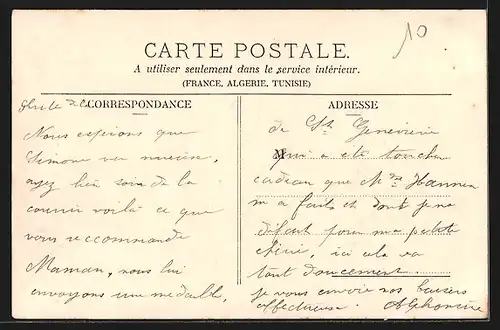 10
CARTE POSTALE.
A utiliser seulement dans le service intérieur.
(FRANCE, ALGERIE, TUNISIE)
CORRESPONDANCE
Nous espérons que
Simone va mieux,
ayez bien soin de la
couvrir voilà ce que
vous recommande
Maman, nous lui
envoyons une médaille,
ADRESSE
de Ste Geneviève
M
qui a été touché
cadeau que Mme
m a faits et dont je ne
pour ma petite
ici ela va
tout doucement.
je vous envoie nos baisers
affectueuse. Alphonsine